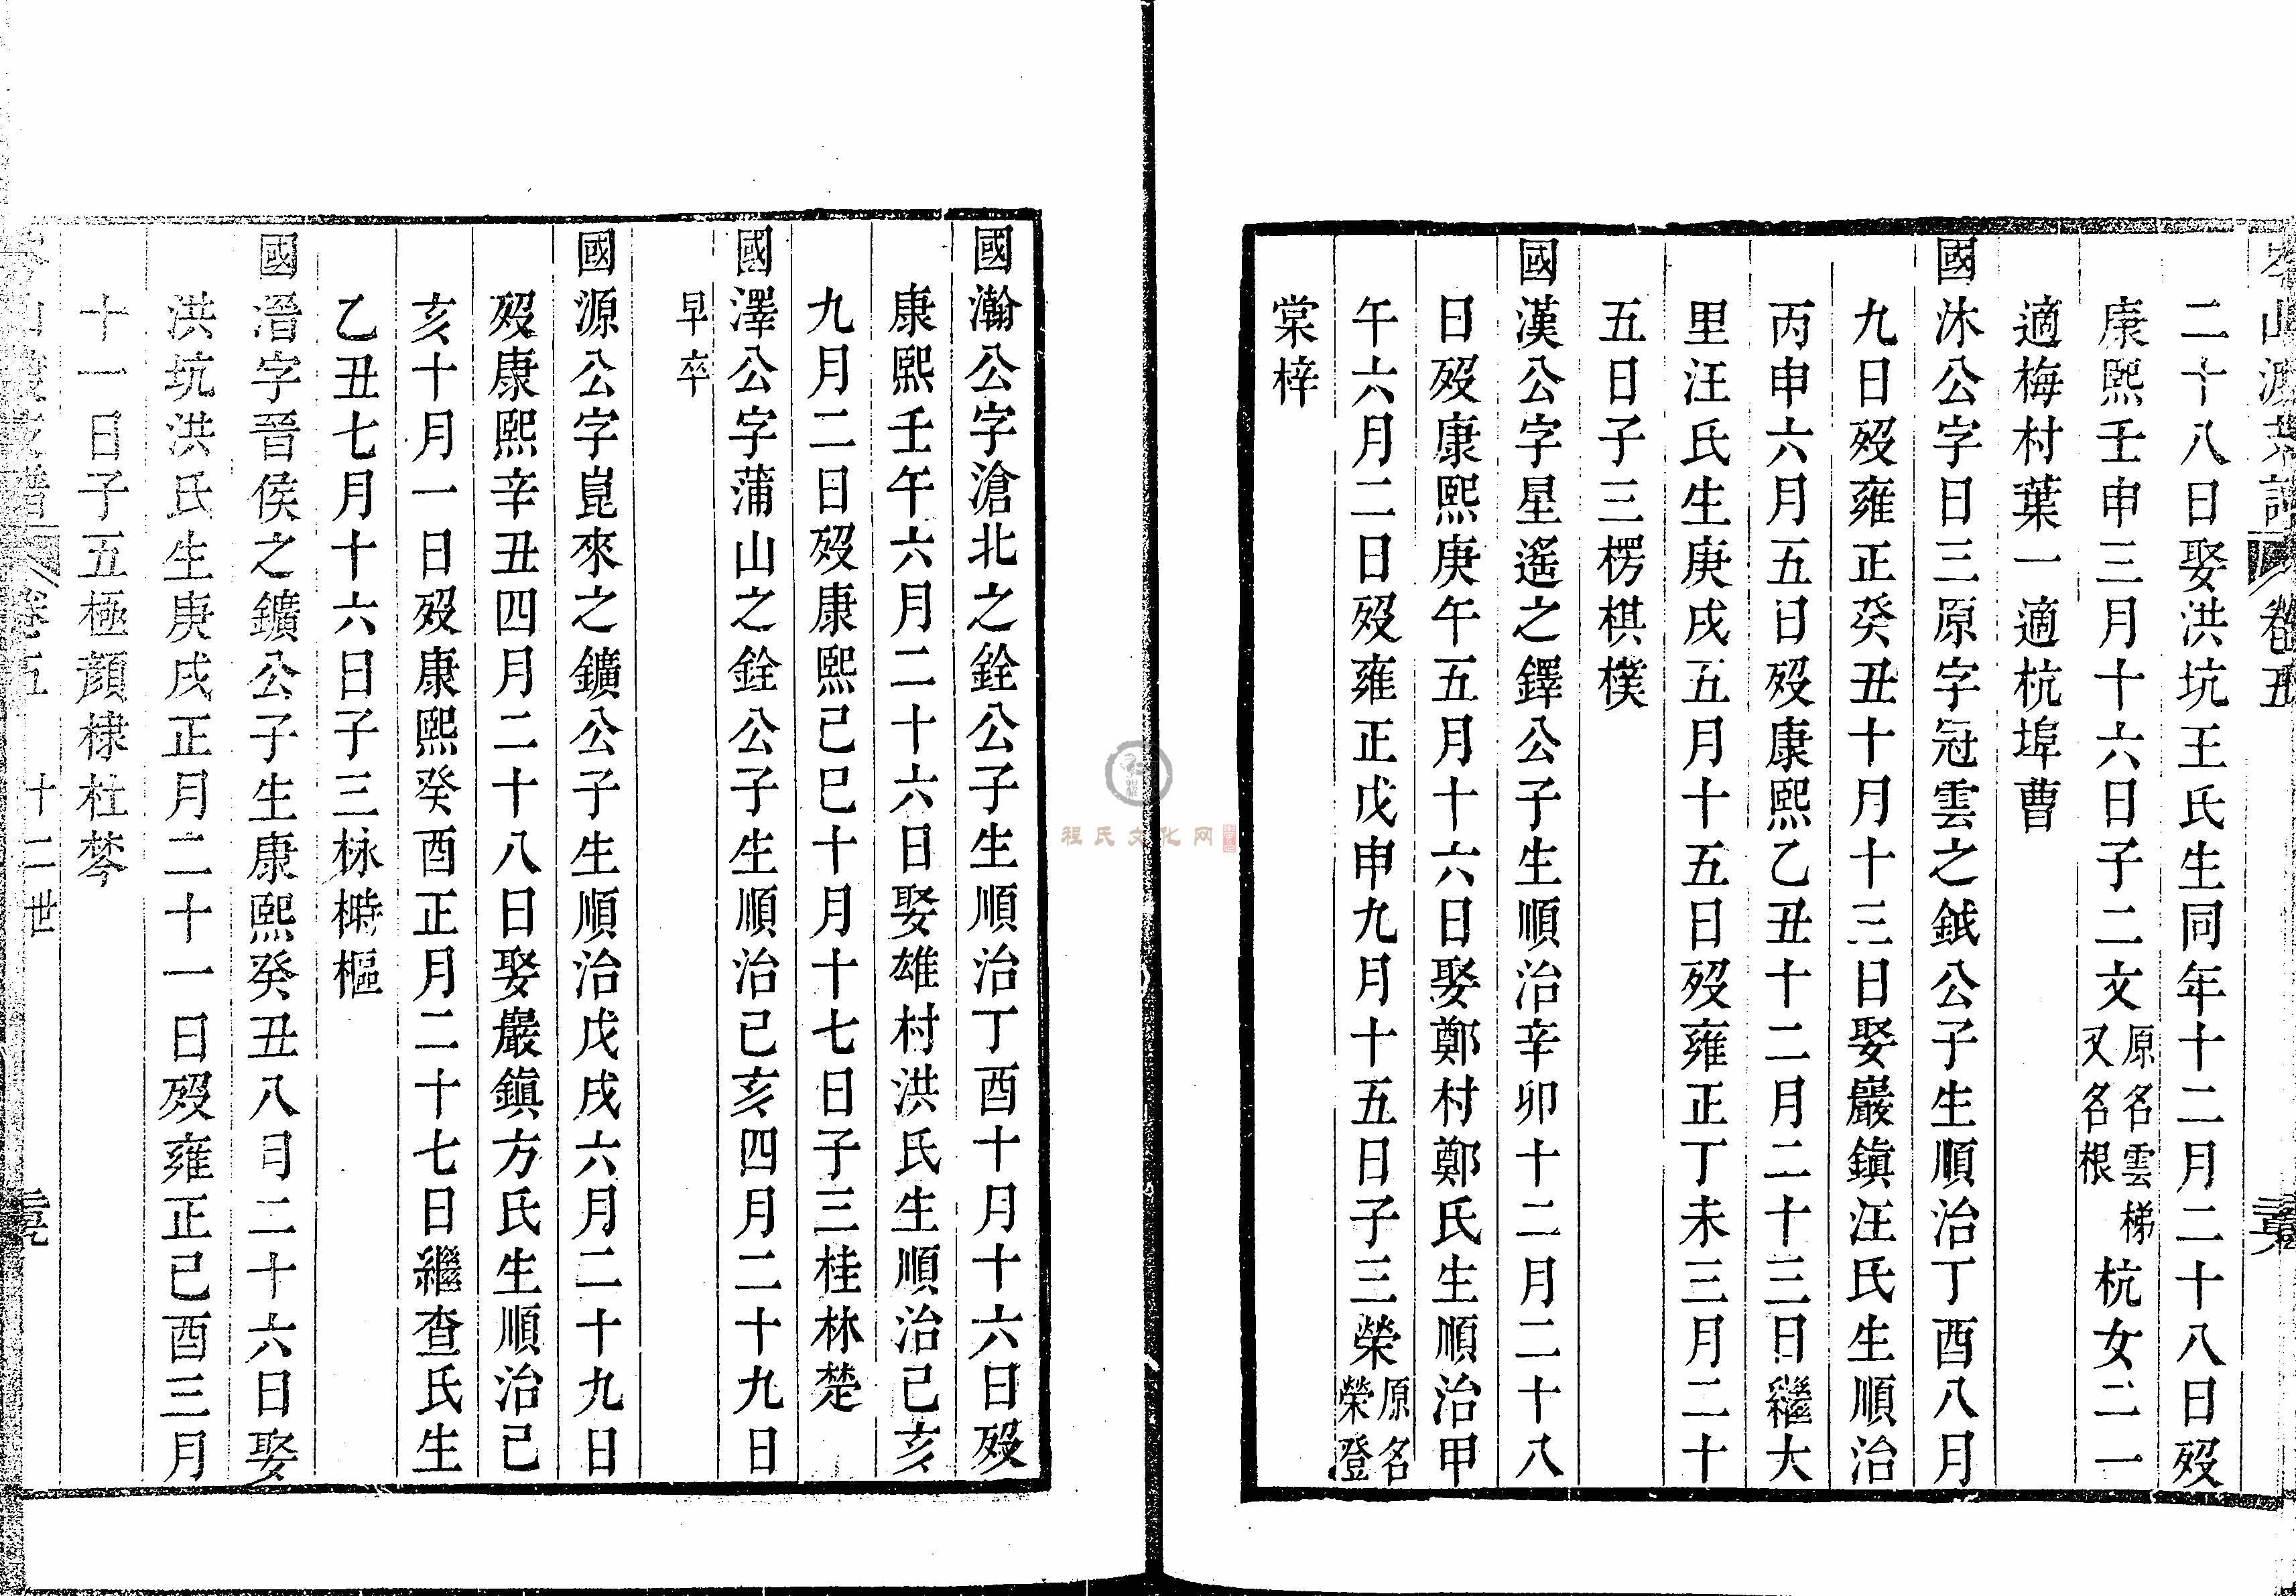 二十八日娶洪坑王氏生同年十二月二十八日歿
康熙壬申三月十六日子二文原名雲梯又名根杭女二一
適梅村葉一適杭埠曹
國沐公字日三原字冠雲之鉞公子生順治丁酉八月
九日歿雍正癸丑十月十三日娶巖鎮汪氏生順治
丙申六月五日歿康熙乙丑十二月二十三日繼大
里汪氏生庚戌五月十五日歿雍正丁未三月二十
五日子三楞棋樸
國漢公字星遙之鐸公子生順治辛卯十二月二十八
日歿康熙庚午五月十六日娶鄭村鄭氏生順治甲
午六月二日歿雍正戊申九月十五日子三榮原名榮登
棠梓
國瀚公字滄北之銓公子生順治丁酉十月十六日歿
康熙壬午六月二十六日娶雄村洪氏生順治己亥
九月二日歿康熙己巳十月十七日子三桂林楚
國澤公字蒲山之銓公子生順治己亥四月二十九日
早卒
國源公字崑來之鑛公子生順治戊戌六月二十九日
歿康熙辛丑四月二十八日娶巖鎮方氏生順治己
亥十月一日歿康熙癸酉正月二十七日繼查氏生
乙丑七月十六日子三栐榯樞
國溍字晉侯之鑛公子生康熙癸丑八月二十六日娶
洪坑洪氏生庚戌正月二十一日歿雍正己酉三月
十一日子五極顔棣杜棽
卷五 十二世
程氏文化网